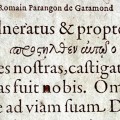 Romain Parangon de Garamond
lneratus & propte
προσῆλθεν αυτῷ
es nostras, castigat
as fuit nobis. Om
e ad viam suam. D